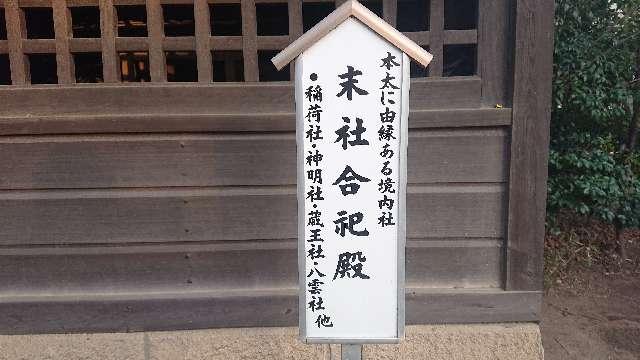 本太に由縁ある境内社
末社合祀殿
●稲荷社・神明社・蔵王社・八雲社 他